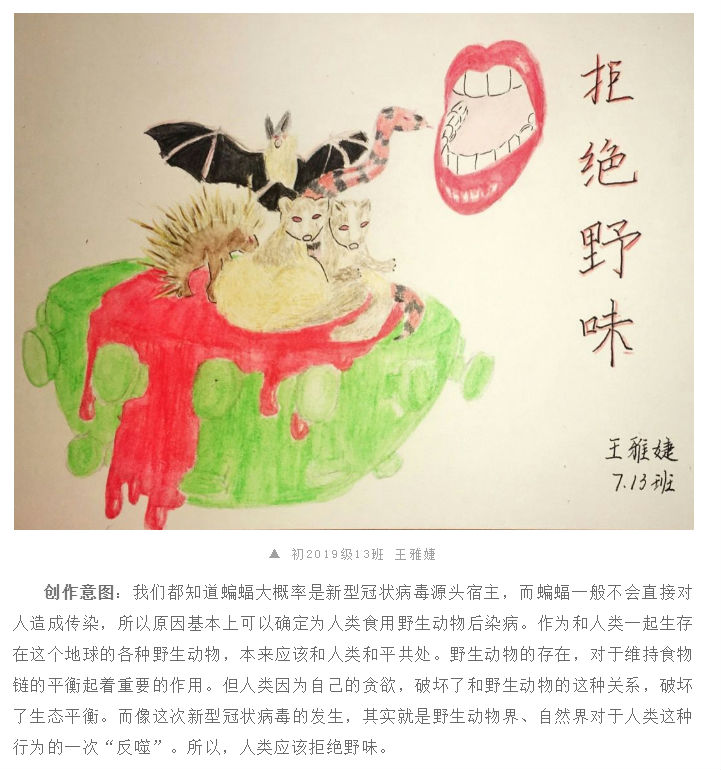 拒绝野味
王雅婕
7.13班
▲ 初2019级13班 王雅婕
创作意图：我们都知道蝙蝠大概率是新型冠状病毒源头宿主，而蝙蝠一般不会直接对
人造成传染，所以原因基本上可以确定为人类食用野生动物后染病。作为和人类一起生存
在这个地球的各种野生动物，本来应该和人类和平共处。野生动物的存在，对于维持食物
链的平衡起着重要的作用。但人类因为自己的贪欲，破坏了和野生动物的这种关系，破坏
了生态平衡。而像这次新型冠状病毒的发生，其实就是野生动物界、自然界对于人类这种
行为的一次“反噬”。所以，人类应该拒绝野味。